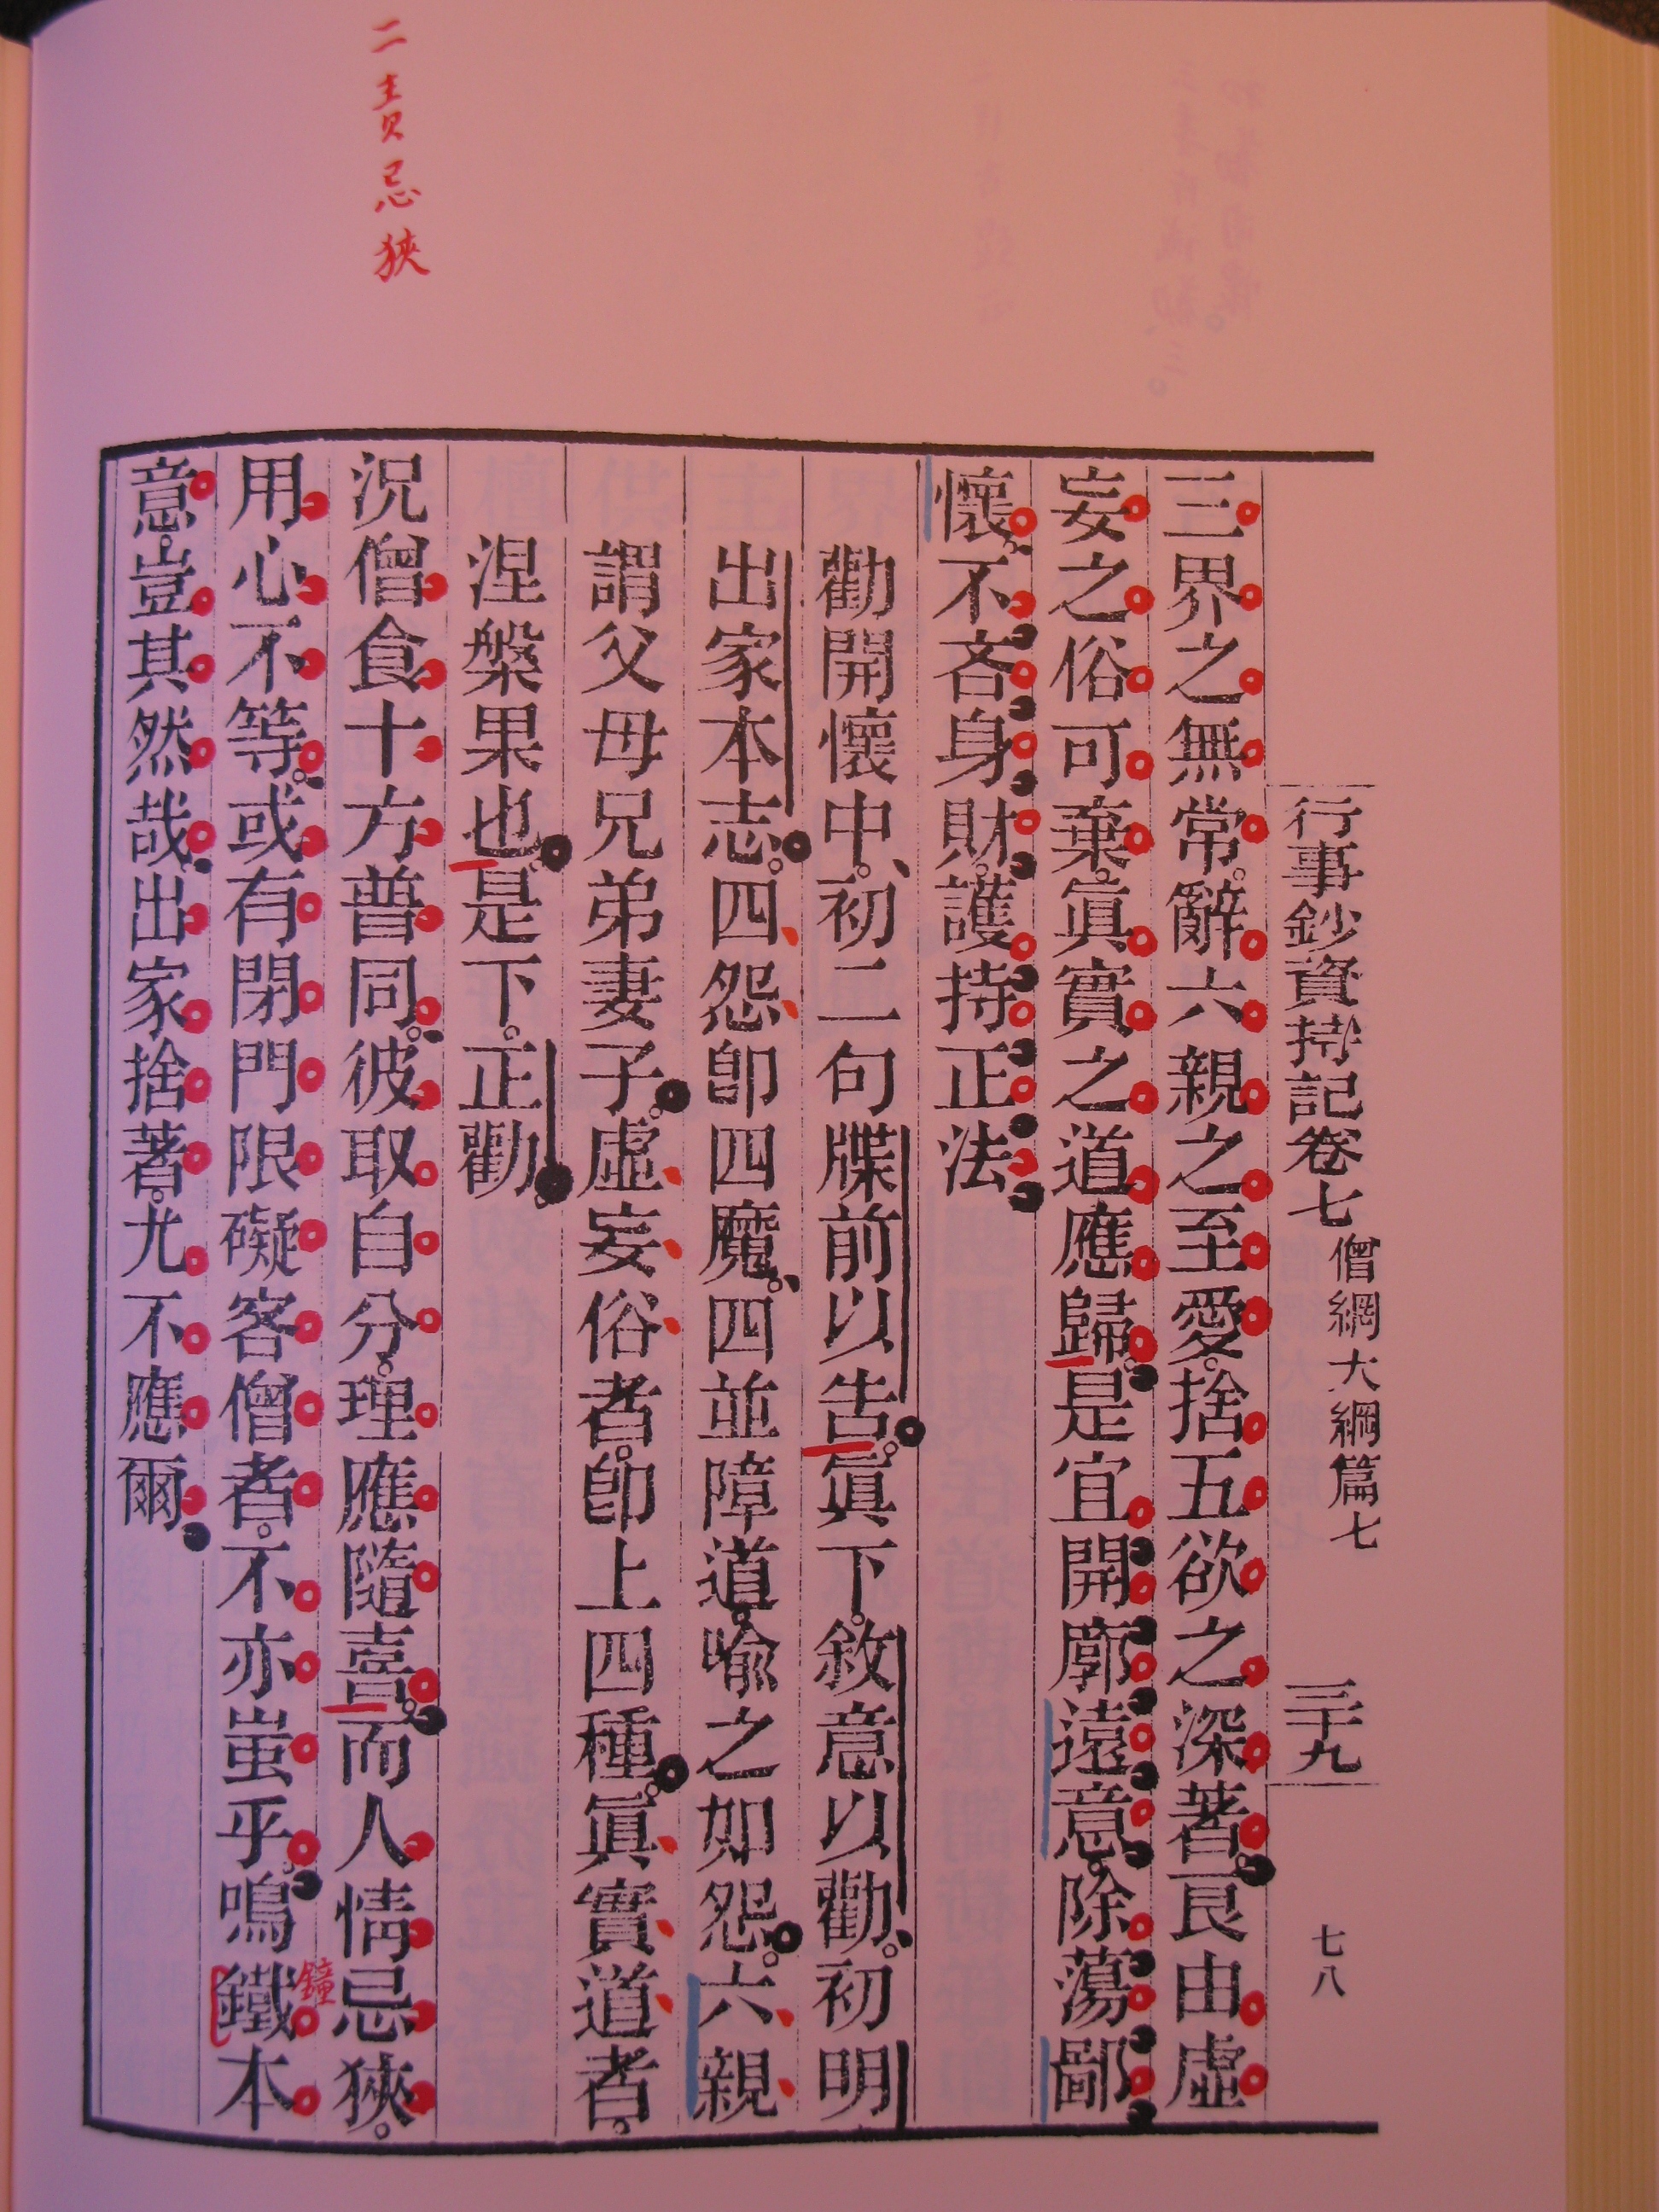 二責忌狹
行事鈔資持記卷七 僧網大綱篇七 三十九 七八
三界之無常。辭六親之至愛。捨五欲之深著。良由虛
妄之俗可棄。眞實之道應歸。是宜開廓遠意。除蕩鄙
懷。不吝身財。護持正法
勸開懷中。初二句牒前以告。眞下。敘意以勸。初明
出家本志。四怨卽四魔。四並障道。喻之如怨。六親
謂父母兄弟妻子。虛妄俗者。卽上四種。眞實道者。
涅槃果也。是下。正勸。
況僧食十方普同。彼取自分。理應隨喜。而人情忌狹。
用心不等。或有閉門限礙客僧者。不亦蚩乎。鳴鐵本
鐘
意。豈其然哉。出家捨著。尤不應爾。